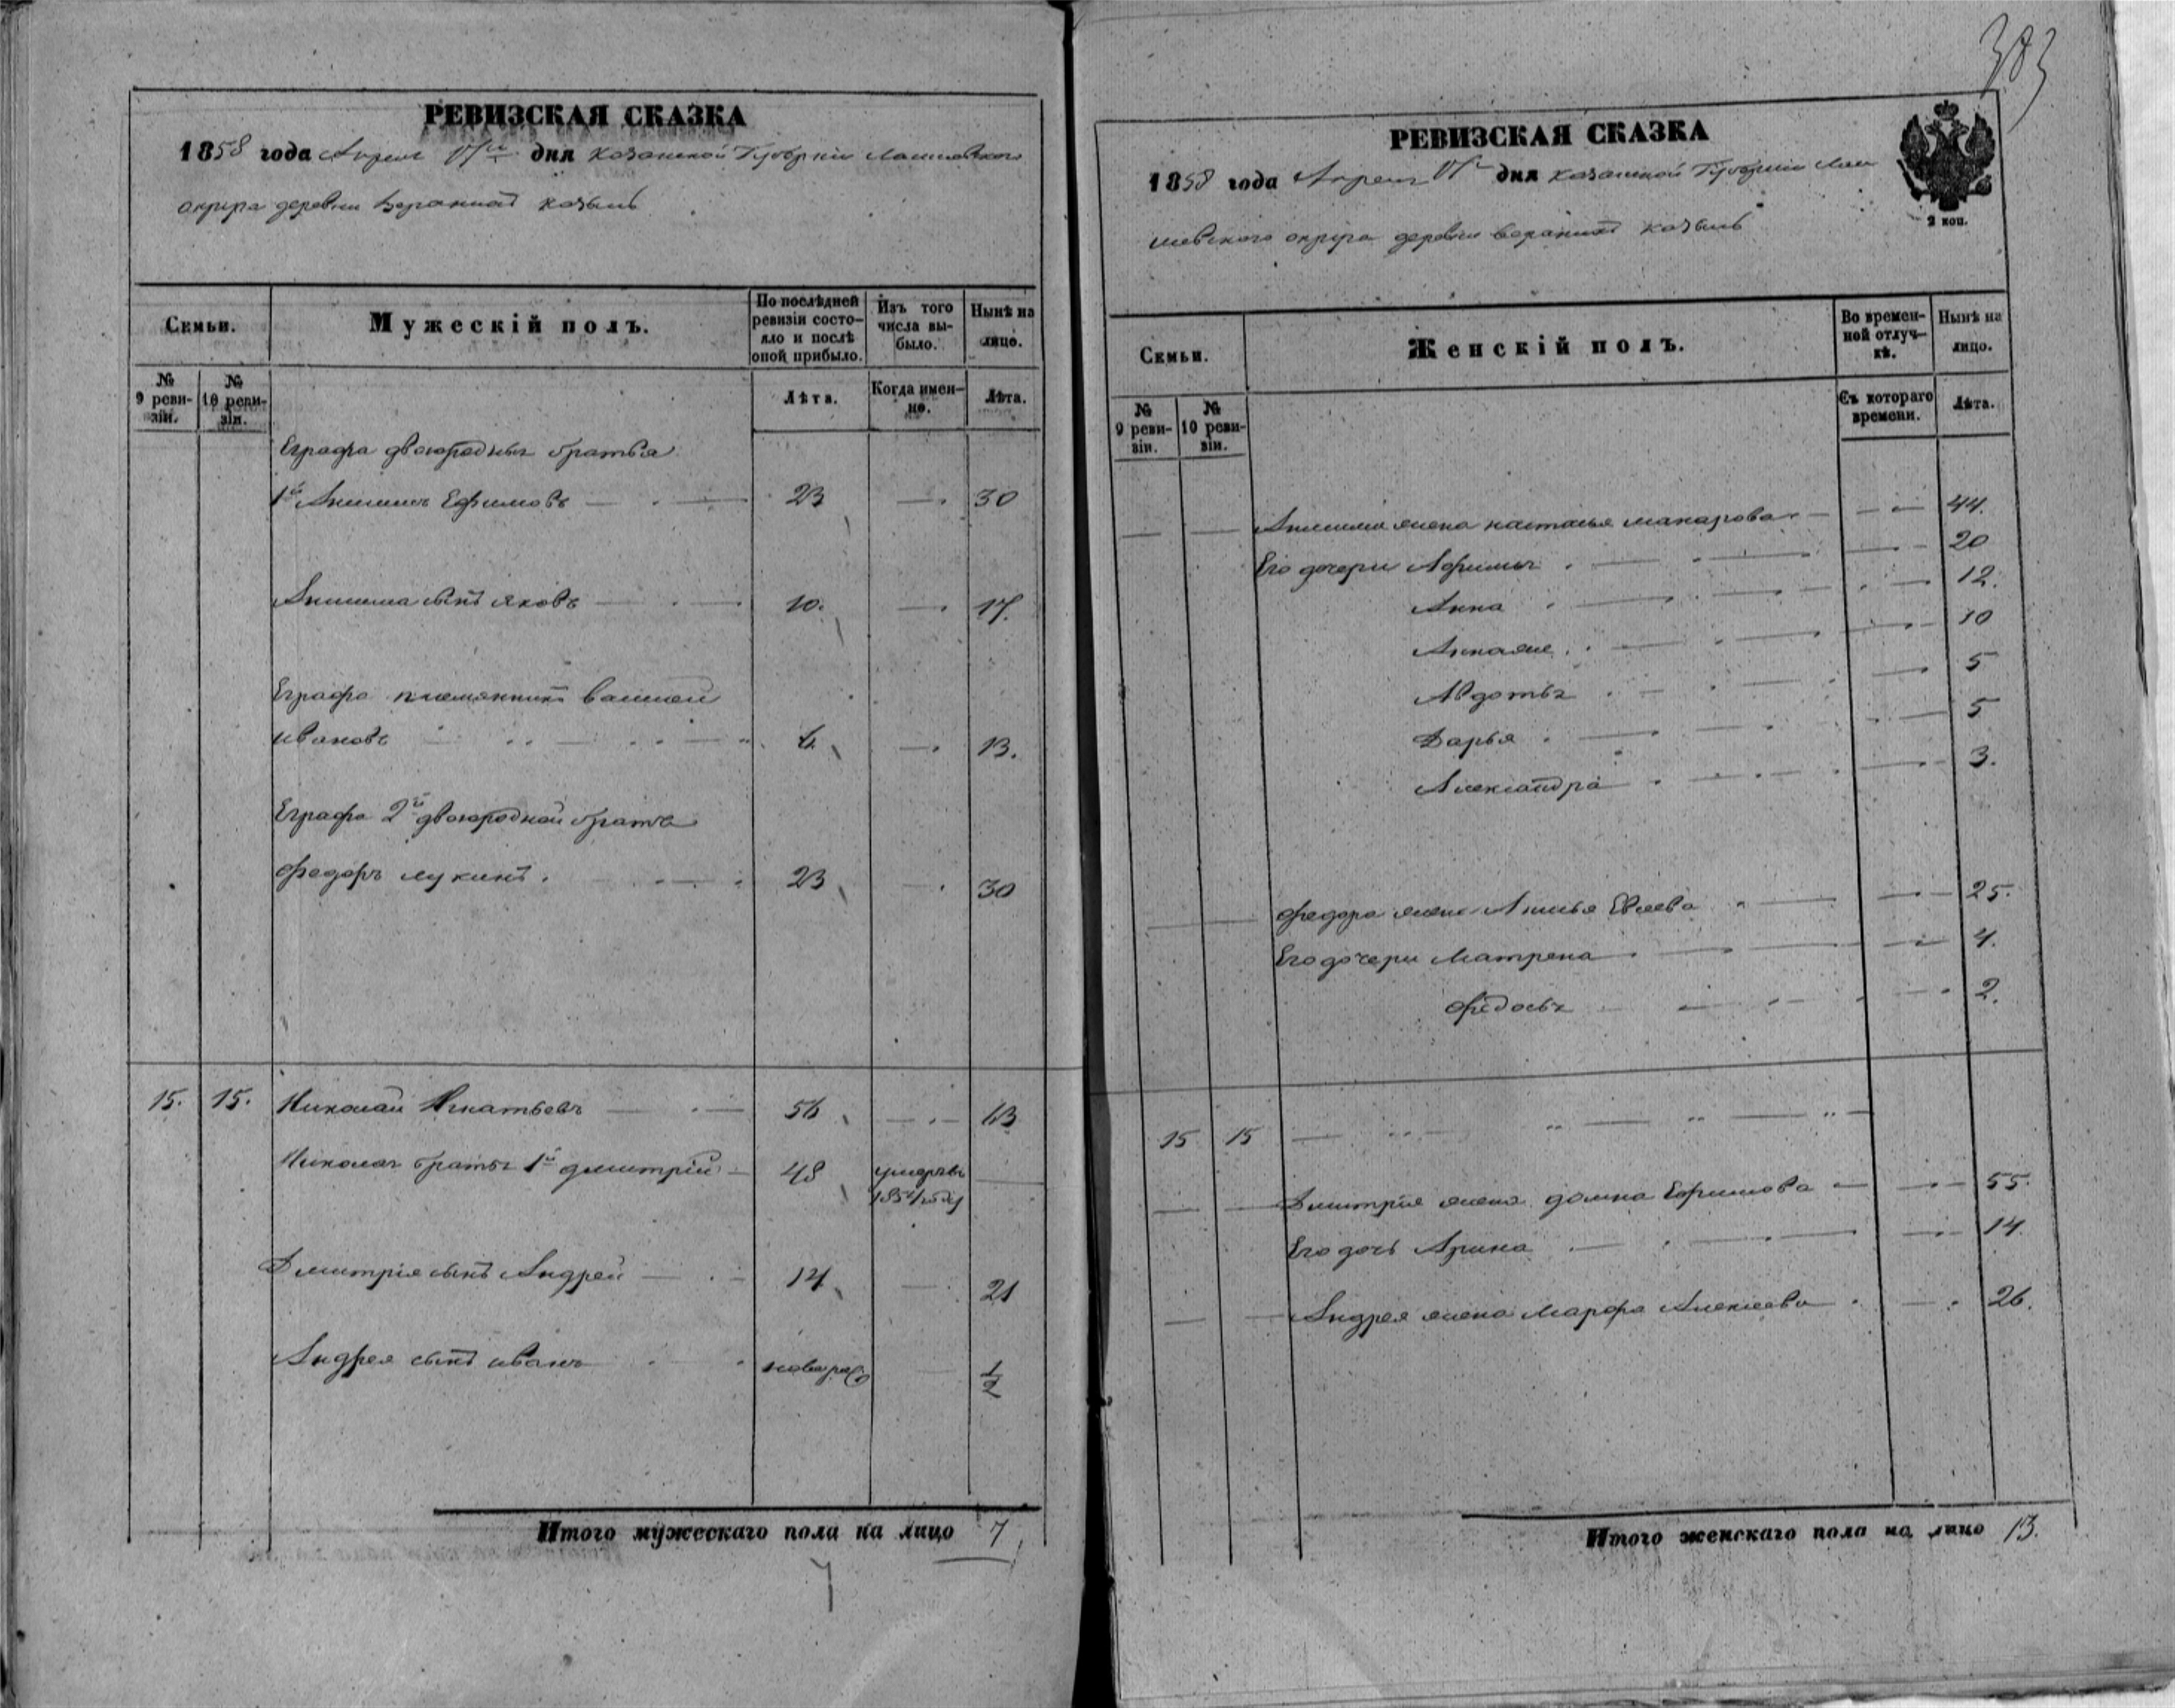 383
РЕВИЗСКАЯ СКАЗКА
1858 года Апреля дня Казанской Губернiи Лаишевского
округа деревни
Семьи.
Мужескiй полъ.
По послѣдней ревизiи состояло и послѣ оной прибыло.
Изъ того числа выбыло.
Нынѣ на лицо.
№ 9 ревизiи.
№ 10 ревизiи.
Лѣта.
Когда именно.
Лѣта.
Еграфа двоюродныя братья
1й Анисимъ Ефимовъ 23 30
Анисима сынъ Яковъ 10. 17.
Еграфа племянникъ Василей
Ивановъ 6 13.
Еграфа 2й двоюродной братъ
Федоръ Лукинъ 23 30
15. 15. Николай Игнатьевъ 56 63
Николая братья 1й Дмитрiй 48 умеръ въ
1854 году
Дмитрiя сынъ Андрей 14 21
Андрея сынъ Иванъ новорож 1/2
Итого мужескаго пола на лицо 7
7
РЕВИЗСКАЯ СКАЗКА
2 коп.
1858 года Апреля дня Казанской Губернiи Лаи
шевского округа деревни
Семьи.
Женскiй полъ.
Во временной отлучкѣ.
Нынѣ на лицо.
№ 9 ревизiи.
№ 10 ревизiи.
Съ котораго времени.
Лѣта.
Анисима жена Настасья Макарова 44.
Его дочери Афимья 20
Анна 12.
Анна же 10
Авдотья 5
Дарья 5
Александра 3.
Федора жена 25.
Его дочери Матрена 4.
Федосья 2.
15 15
Дмитрiя жена Домна Ефимова 55.
Его дочь Арина 14.
Андрея жена Марфа Алексеева 26.
Итого женскаго пола на лицо 13.